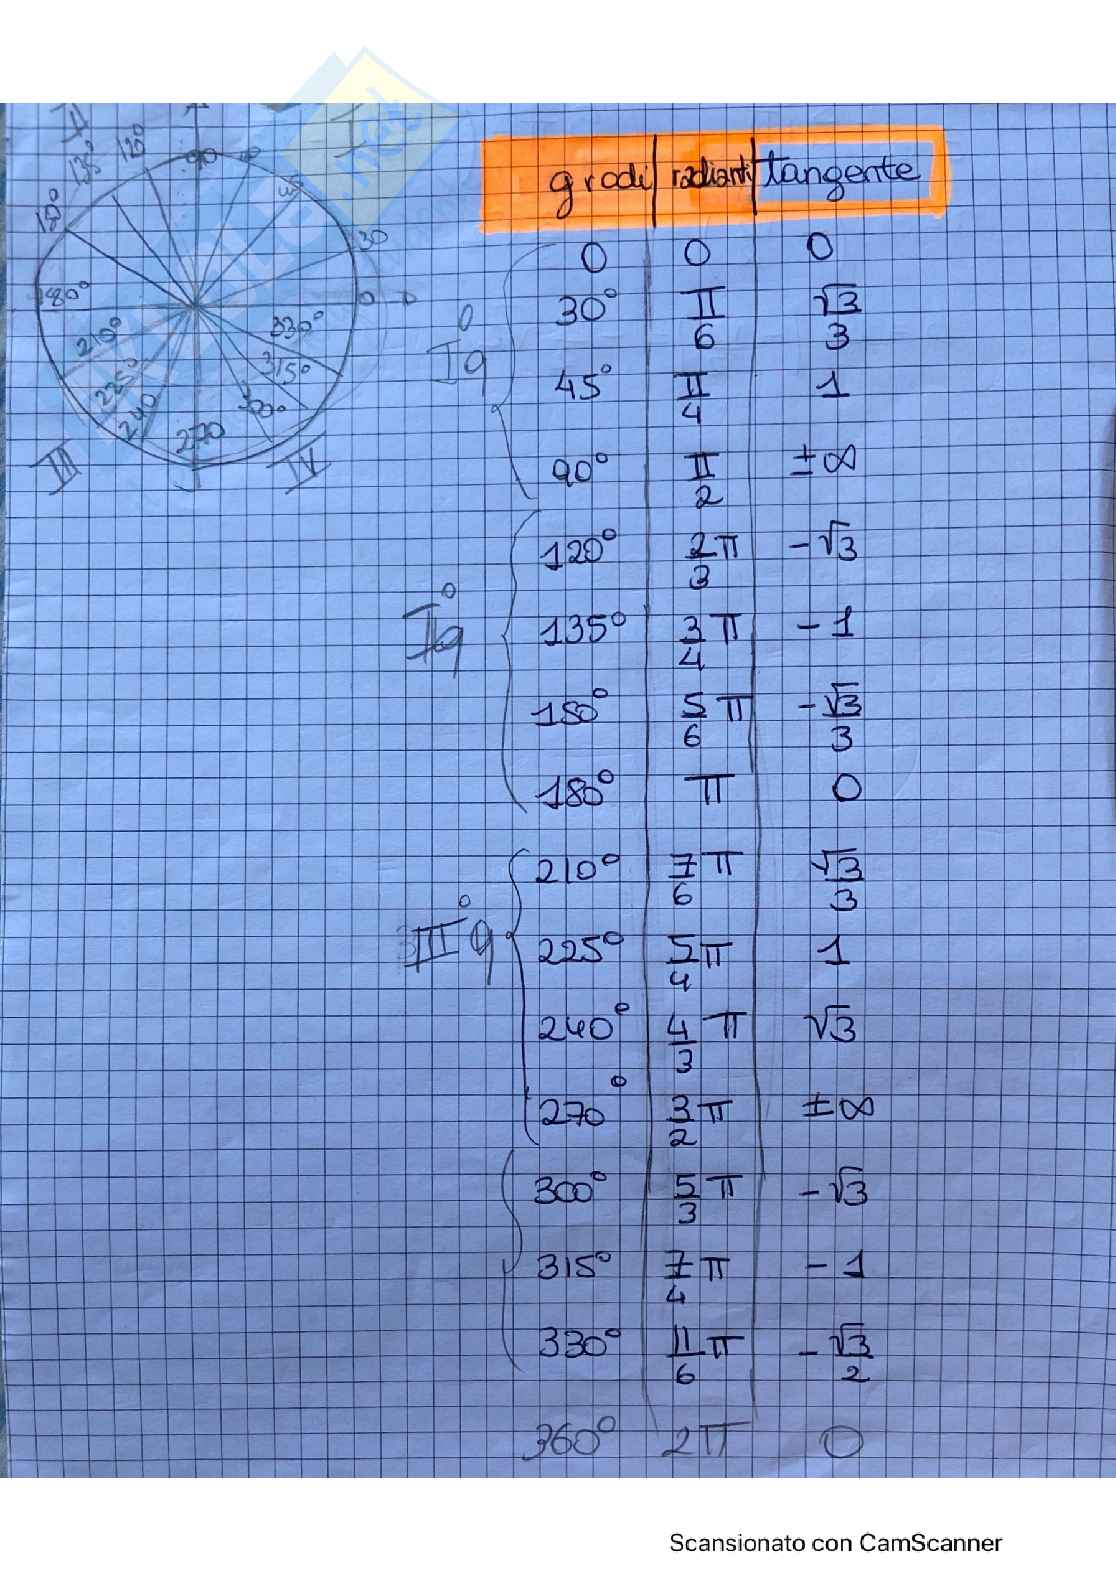 II
I
120°
135°
90
60
45
150°
30
180°
0
210°
330°
225°
315°
240
300°
270
III
IV
gradi radianti tangente
I°q
0 0 0
30° π/6 √3/3
45° π/4 1
90° π/2 ±∞
II°q
120° 2/3 π -√3
135° 3/4 π -1
150° 5/6 π -√3/3
180° π 0
III°q
210° 7/6 π √3/3
225° 5/4 π 1
240° 4/3 π √3
270° 3/2 π ±∞
300° 5/3 π -√3
315° 7/4 π -1
330° 11/6 π -√3/2
360° 2π 0
Scansionato con CamScanner